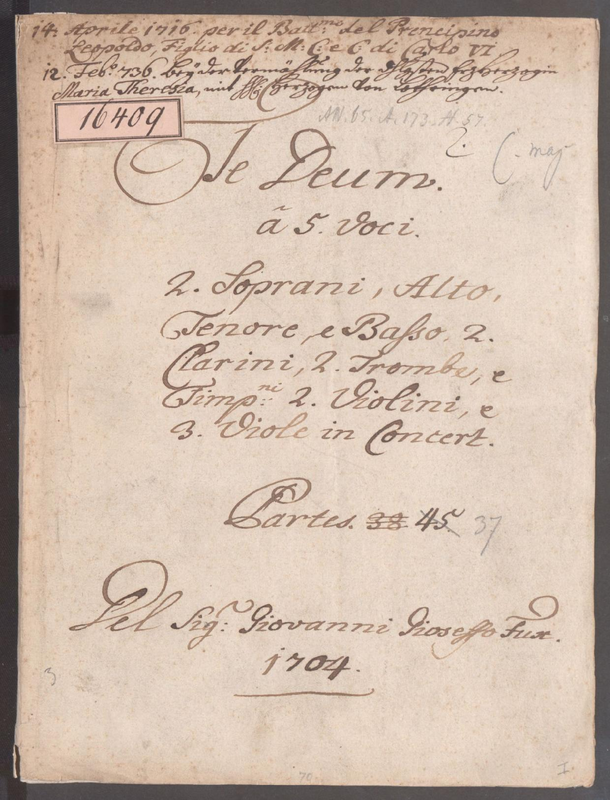 14. Aprile 1716. per il Batt:mo del Principino
Leopoldo, Figlio di S: M: C: e C: di Carlo VI
12. Feb: 736. bey der Vermählung der Erzherzogin
Maria Theresia, mit Herzogen von Lothringen.
16409
AN. 65. A. 173. H. 57.
2.
C. maj
Te Deum.
â 5. Voci.
2. Soprani, Alto,
Tenore, e Basso. 2.
Clarini, 2. Trombe, e
Timp:ni 2. Violini, e
3. Viole in Concert.
Partes. 38 45. 37
Del Sig: Giovanni Gioseffo Fux.
1704.
3
70
I.